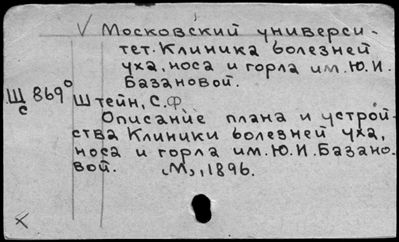 V Московский универси-
тет. Клиника болезней
уха, носа и горла им. Ю.И.
Базановой.
Щ/с 869°
Штейн, С.Ф
Описание плана и устрой-
ства Клиники болезней уха,
носа и горла им. Ю.И. Базано-
вой. М., 1896.